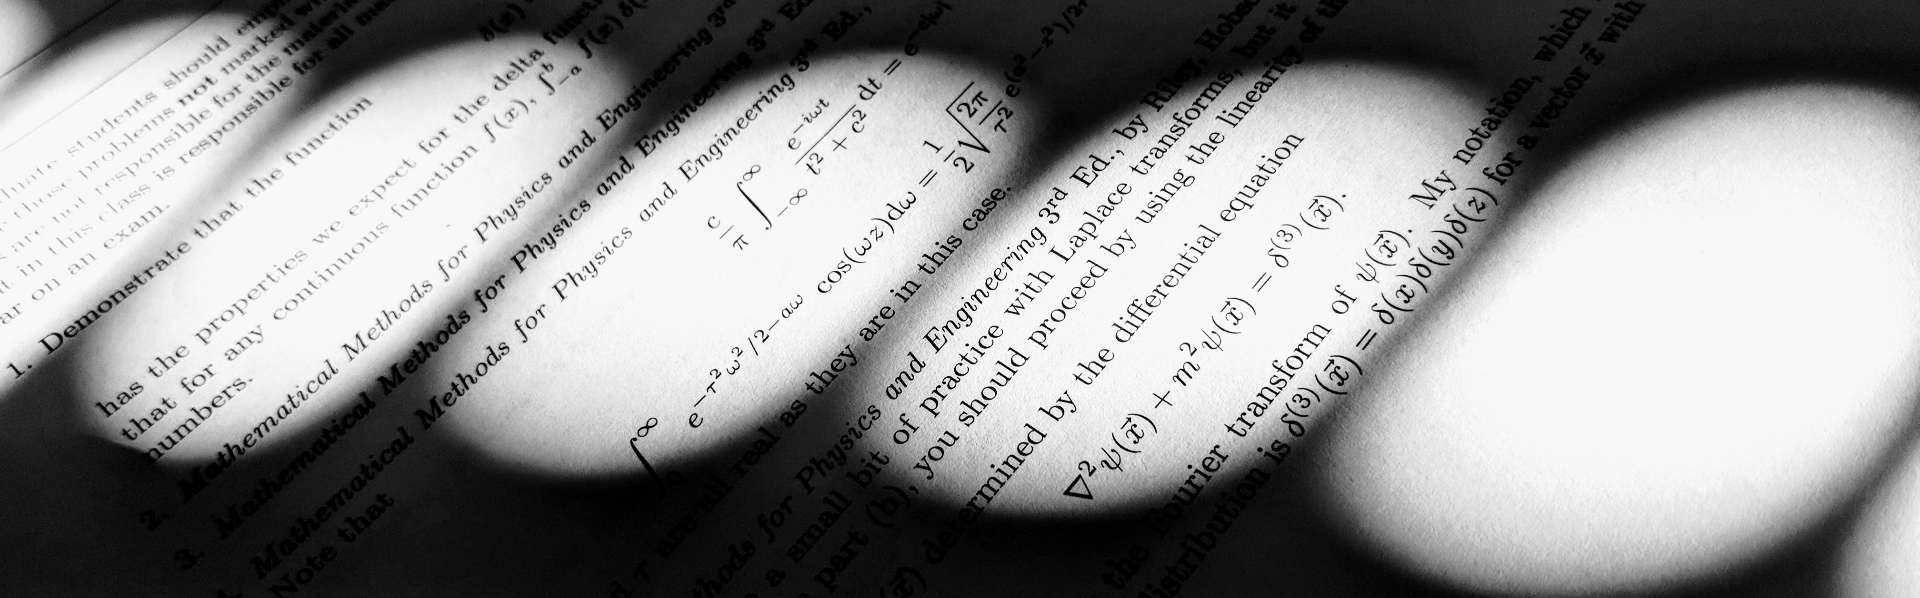 should
students
those problems not marked
are not responsible for the material
in this class is responsible for all
ar on an exam.
1. Demonstrate that the function
has the properties we expect for the delta
that for any continuous function f(x), ∫_{-a}^{b} f(x) δ(
numbers.
2. Mathematical Methods for Physics and Engineering 3rd
3. Mathematical Methods for Physics and Engineering 3rd Ed
4. Mathematical Methods for Physics and Engineering 3rd Ed.,
Note that
c/π ∫_{-∞}^{∞} e^{-iωt}/(t² + c²) dt = e^{-c|ω|}
∫_{0}^{∞} e^{-τ²ω²/2-aω} cos(ωz)dω = 1/2 √(2π/τ²)
τ are all real as they are in this case.
thods for Physics and Engineering 3rd Ed., by Riley, Hobs
a small bit of practice with Laplace transforms, but it
part (b), you should proceed by using the linearity of th
(x⃗) determined by the differential equation
∇²ψ(x⃗) + m²ψ(x⃗) = δ^{(3)}(x⃗).
the Fourier transform of ψ(x⃗). My notation, which
distribution is δ^{(3)}(x⃗) = δ(x)δ(y)δ(z) for a vector x⃗ with